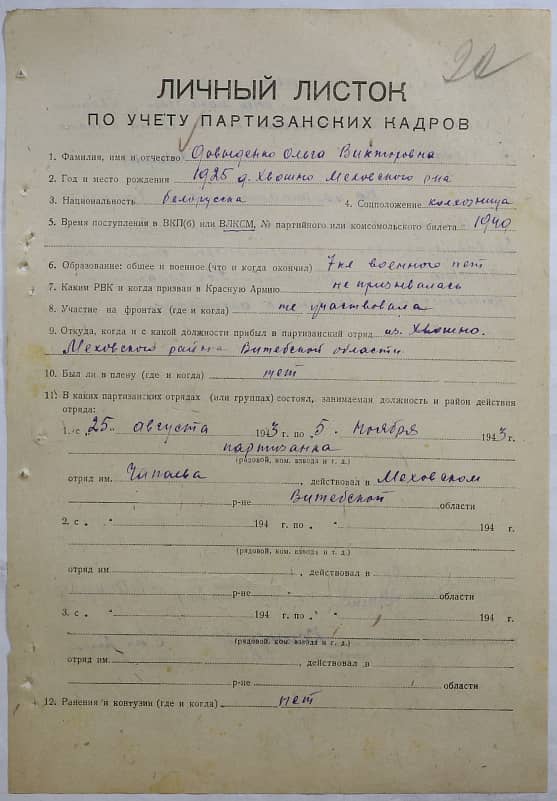 20
ЛИЧНЫЙ ЛИСТОК
ПО УЧЕТУ ПАРТИЗАНСКИХ КАДРОВ
1. Фамилия, имя и отчество Довыденко Ольга Викторовна
2. Год и место рождения 1925 д. Хвошно Меховского р-на
3. Национальность белорусска 4. Соцположение колхозница
5. Время поступления в ВКП(б) или ВЛКСМ, № партийного или комсомольского билета 1940
6. Образование: общее и военное (что и когда окончил) 7 кл военного нет
7. Каким РВК и когда призван в Красную Армию не призывалась
8. Участие на фронтах (где и когда) не участвовала
9. Откуда, когда и с какой должности прибыл в партизанский отряд из Хвошно.
Меховского района Витебской области
10. Был ли в плену (где и когда) нет
11. В каких партизанских отрядах (или группах) состоял, занимаемая должность и район действия
отряда:
1. с „25" августа 1943 г. по 5. ноября 1943 г.
партизанка
(рядовой, ком. взвода и т. д.)
отряд им. Чапаева, действовал в Меховском
р-не Витебской области
2. с „ " 194 г. по „ " 194 г.
(рядовой, ком. взвода и т. д.)
отряд им. , действовал в
р-не области
3. с „ " 194 г. по „ " 194 г.
(рядовой, ком. взвода и т. д.)
отряд им. , действовал в
р-не области
12. Ранения и контузии (где и когда) нет